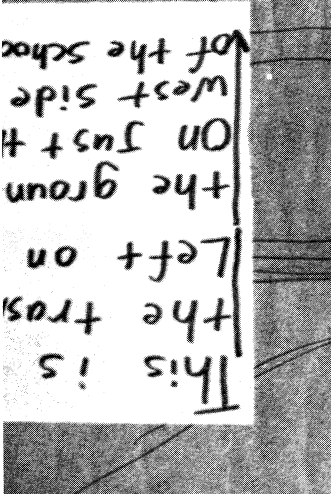 This is
the tras
Left on
the groun
on Just t
west side
of the schoo